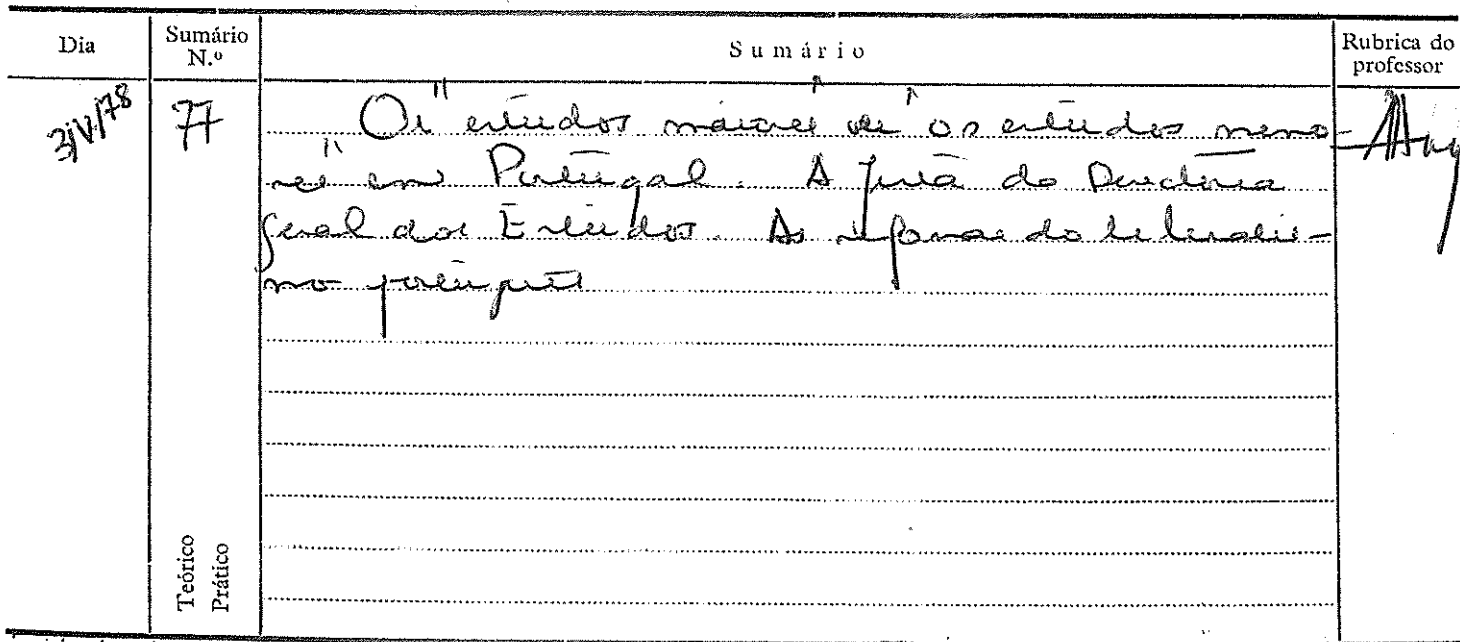 Dia
Sumário N.º
Sumário
Rubrica do professor
3/V/78
77
Os "estudos maiores" e os "estudos meno-
res" em Portugal. A Junta da Directoria
Geral dos Estudos. As reformas do liberalis-
mo português
Teórico
Prático